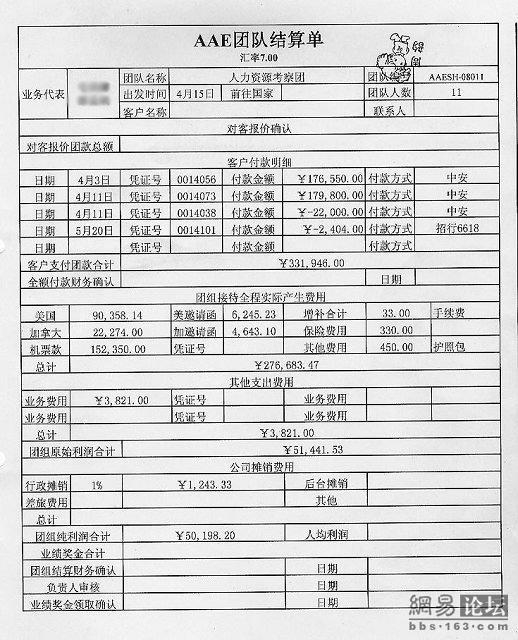 AAE团队结算单
汇率7.00
业务代表 团队名称 人力资源考察团 团队 AAESH-08011
出发时间 4月15日 前往国家 团队人数 11
客户名称 联系人
对客报价确认
对客报价团款总额
客户付款明细
日期 4月3日 凭证号 0014056 付款金额 ￥176,550.00 付款方式 中安
日期 4月11日 凭证号 0014073 付款金额 ￥179,800.00 付款方式 中安
日期 4月11日 凭证号 0014038 付款金额 ￥-22,000.00 付款方式 中安
日期 5月20日 凭证号 0014101 付款金额 ￥-2,404.00 付款方式 招行6618
日期 凭证号 付款金额 付款方式
客户支付团款合计 ￥331,946.00
全额付款财务确认 日期
团组接待全程实际产生费用
美国 90,358.14 美邀请函 6,245.23 增补合计 33.00 手续费
加拿大 22,274.00 加邀请函 4,643.10 保险费用 330.00
机票款 152,350.00 凭证号 其他费用 450.00 护照包
总计 ￥276,683.47
其他支出费用
业务费用 ￥3,821.00 凭证号 业务费用
业务费用 凭证号 业务费用
总计 ￥3,821.00
团组原始利润合计 ￥51,441.53
公司摊销费用
行政摊销 1% ￥1,243.33 后台摊销
差旅费用 其他
总计
团组纯利润合计 ￥50,198.20 人均利润
业绩奖金合计
团组结算财务确认 日期
负责人审核 日期
业绩奖金领取确认 日期
網易 论坛
bbs.163.com